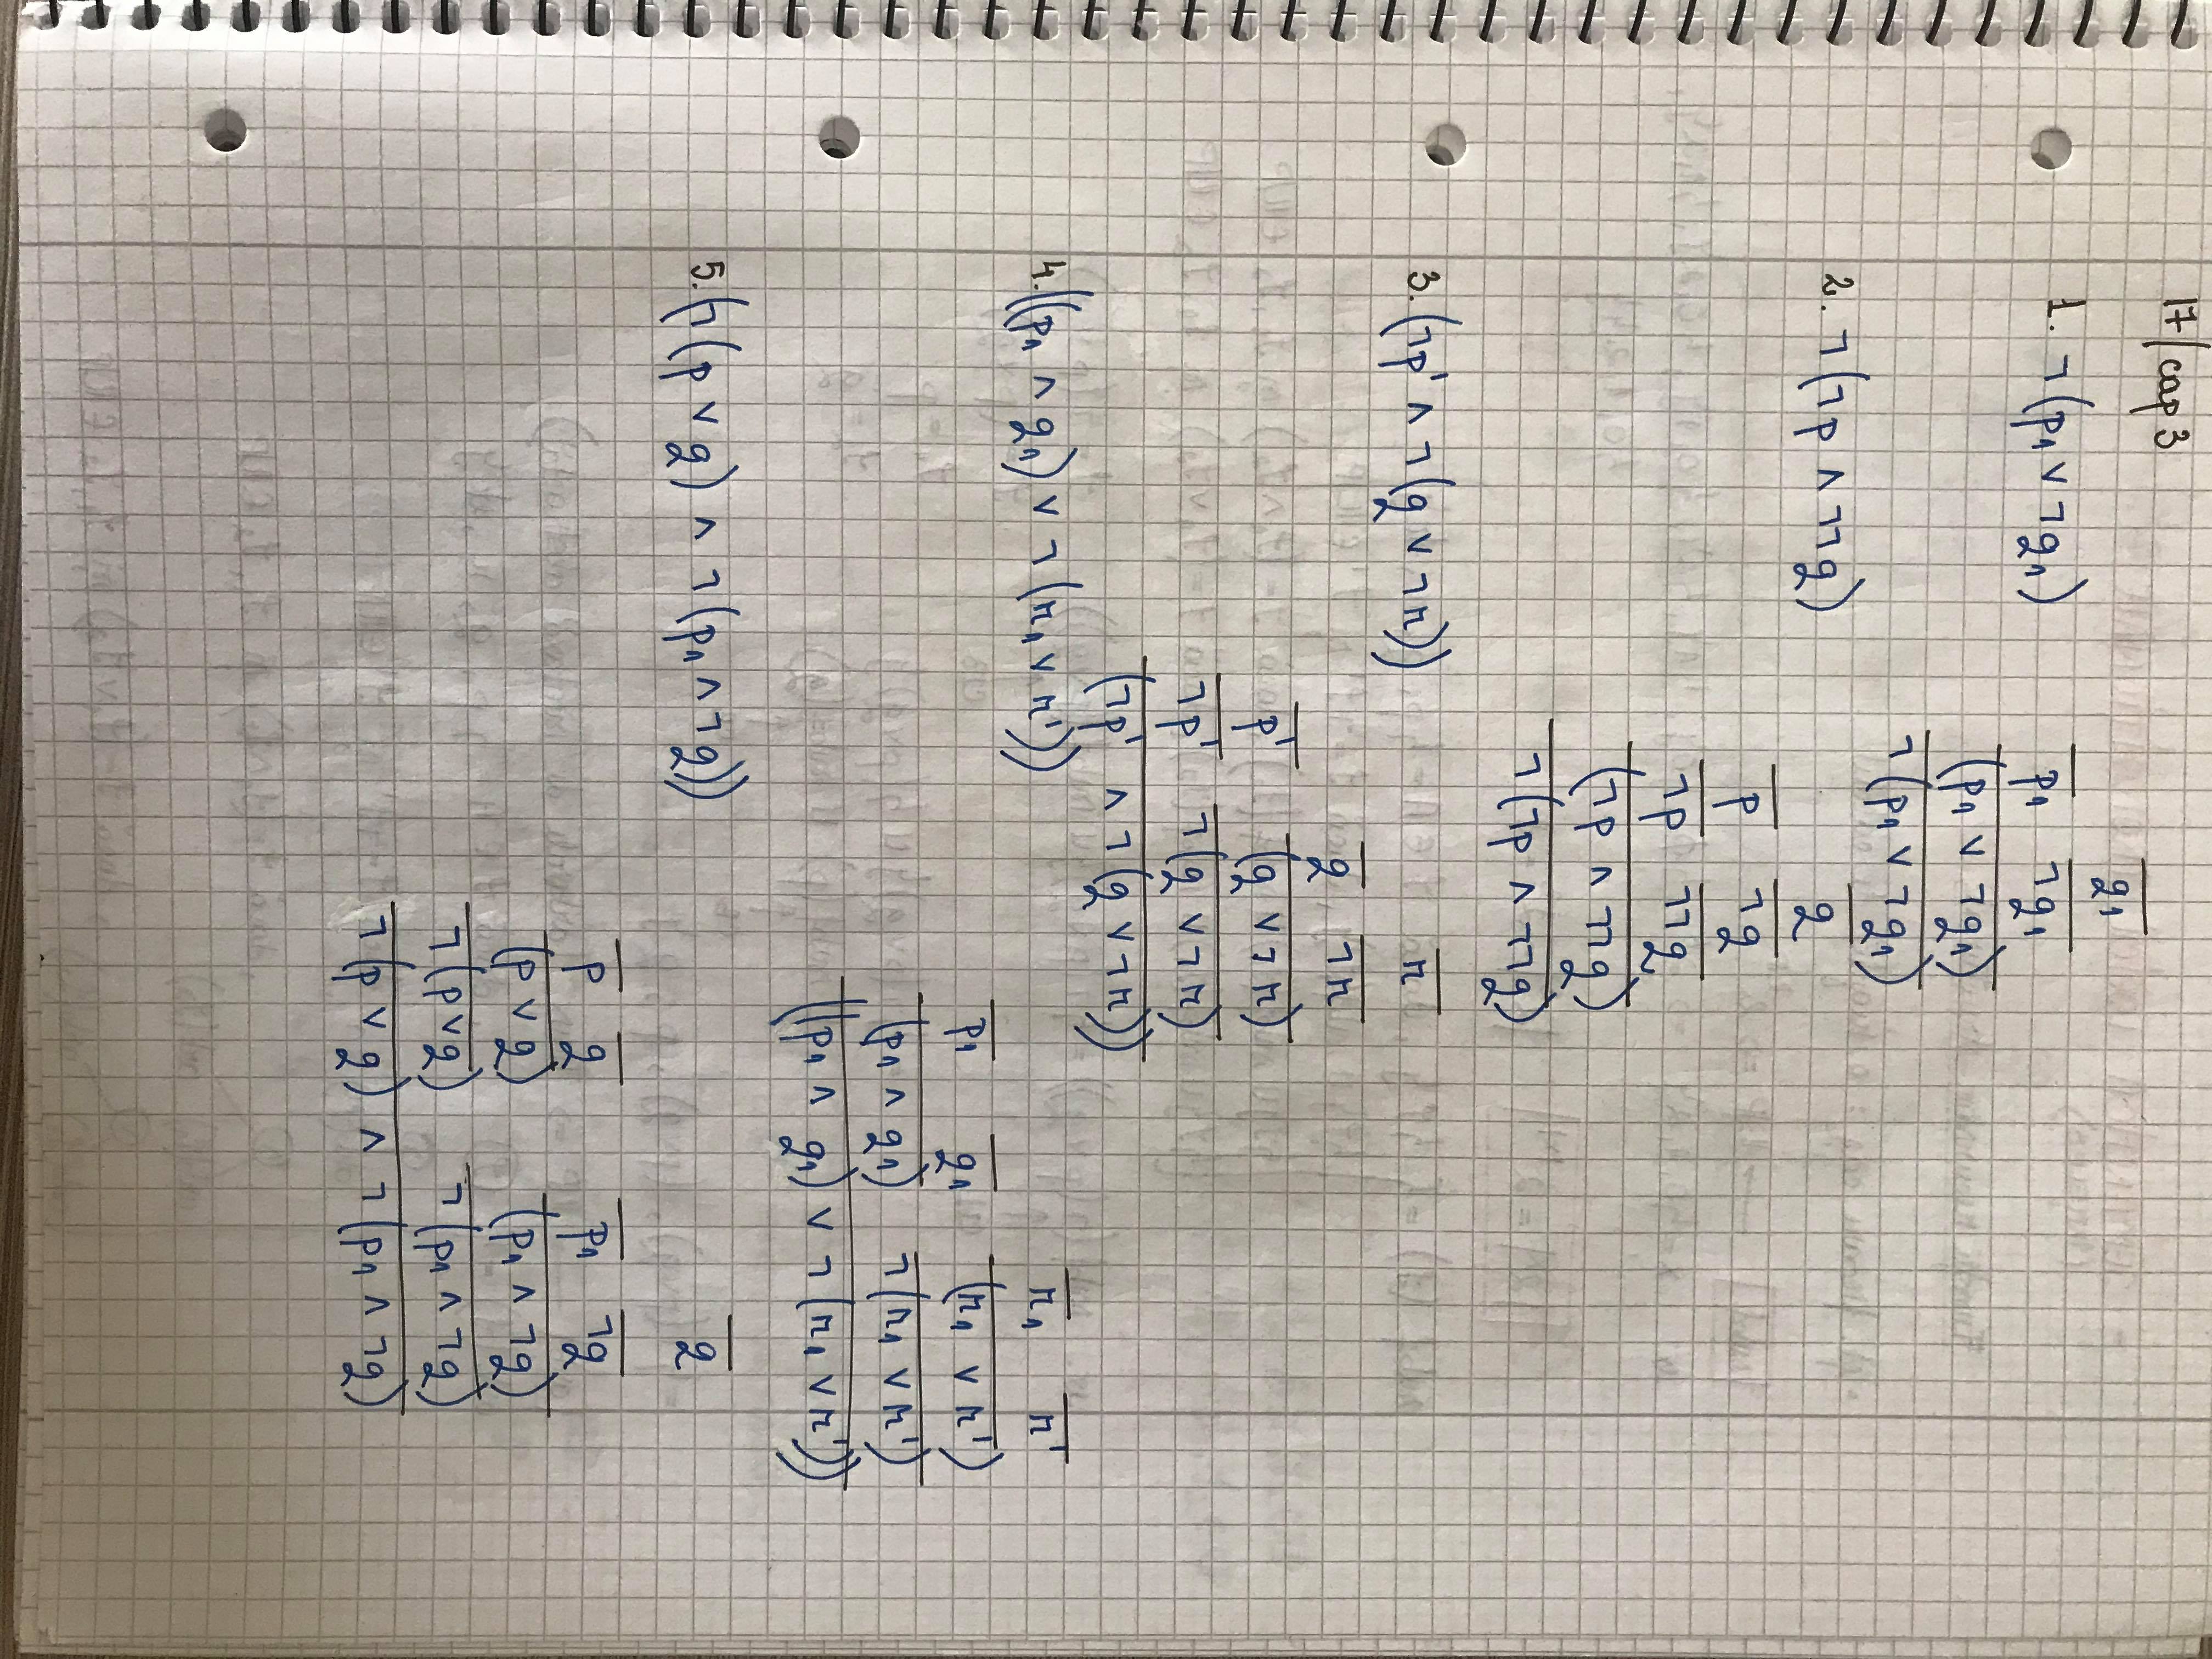 17/cap 3
q₁
1. ¬(p₁ ∨ ¬q₁) p₁ ¬q₁
(p₁ ∨ ¬q₁)
¬(p₁ ∨ ¬q₁)
2. ¬(¬p ∧ ¬¬q) q
p ¬q
¬p ¬¬q
(¬p ∧ ¬¬q)
¬(¬p ∧ ¬¬q)
3. (¬p' ∧ ¬(q ∨ ¬r)) r
q ¬r
p' (q ∨ ¬r)
¬p' ¬(q ∨ ¬r)
(¬p' ∧ ¬(q ∨ ¬r))
4. ((p₁ ∧ q₁) ∨ ¬(r₁ ∨ r')) r₁ r'
p₁ q₁ (r₁ ∨ r')
(p₁ ∧ q₁) ¬(r₁ ∨ r')
((p₁ ∧ q₁) ∨ ¬(r₁ ∨ r'))
5. (¬(p ∨ q) ∧ ¬(p₁ ∧ ¬q)) q
p q p₁ ¬q
(p ∨ q) (p₁ ∧ ¬q)
¬(p ∨ q) ¬(p₁ ∧ ¬q)
¬(p ∨ q) ∧ ¬(p₁ ∧ ¬q)